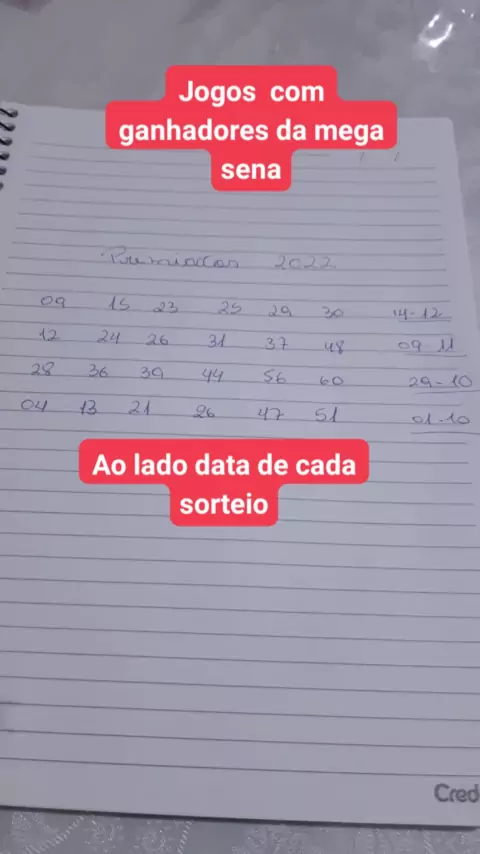 Jogos com
ganhadores da mega
sena
Premiados 2022
09 15 23 25 29 30 14-12
12 24 26 31 37 48 09-11
28 36 39 44 56 60 29-10
04 13 21 26 47 51 01-10
Ao lado data de cada
sorteio
Cred